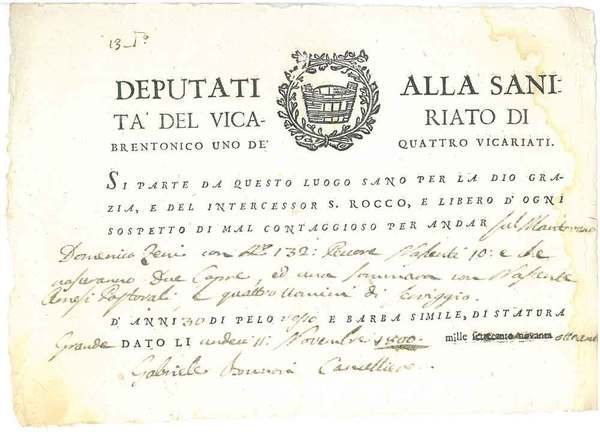 13_I°
DEPUTATI ALLA SANI:
TA' DEL VICA- RIATO DI
BRENTONICO UNO DE' QUATTRO VICARIATI.
SI PARTE DA QUESTO LUOGO SANO PER LA DIO GRA-
ZIA, E DEL INTERCESSOR S. ROCCO, E LIBERO D'OGNI
SOSPETTO DI MAL CONTAGGIOSO PER ANDAR sul Mantovano
Domenico Zeni con N° 132: Pecore Nascenti 10: e che
nasceranno Due Capre, ed una Sommara con Nascente
Arnesi Pastorali e quattro uomini di serviggio.
D' ANNI 30 DI PELO rosso E BARBA SIMILE, DI STATURA
Grande DATO LI undeci 11: Novembre 1800. mille settecento novanta
Gabriele Cancelliere